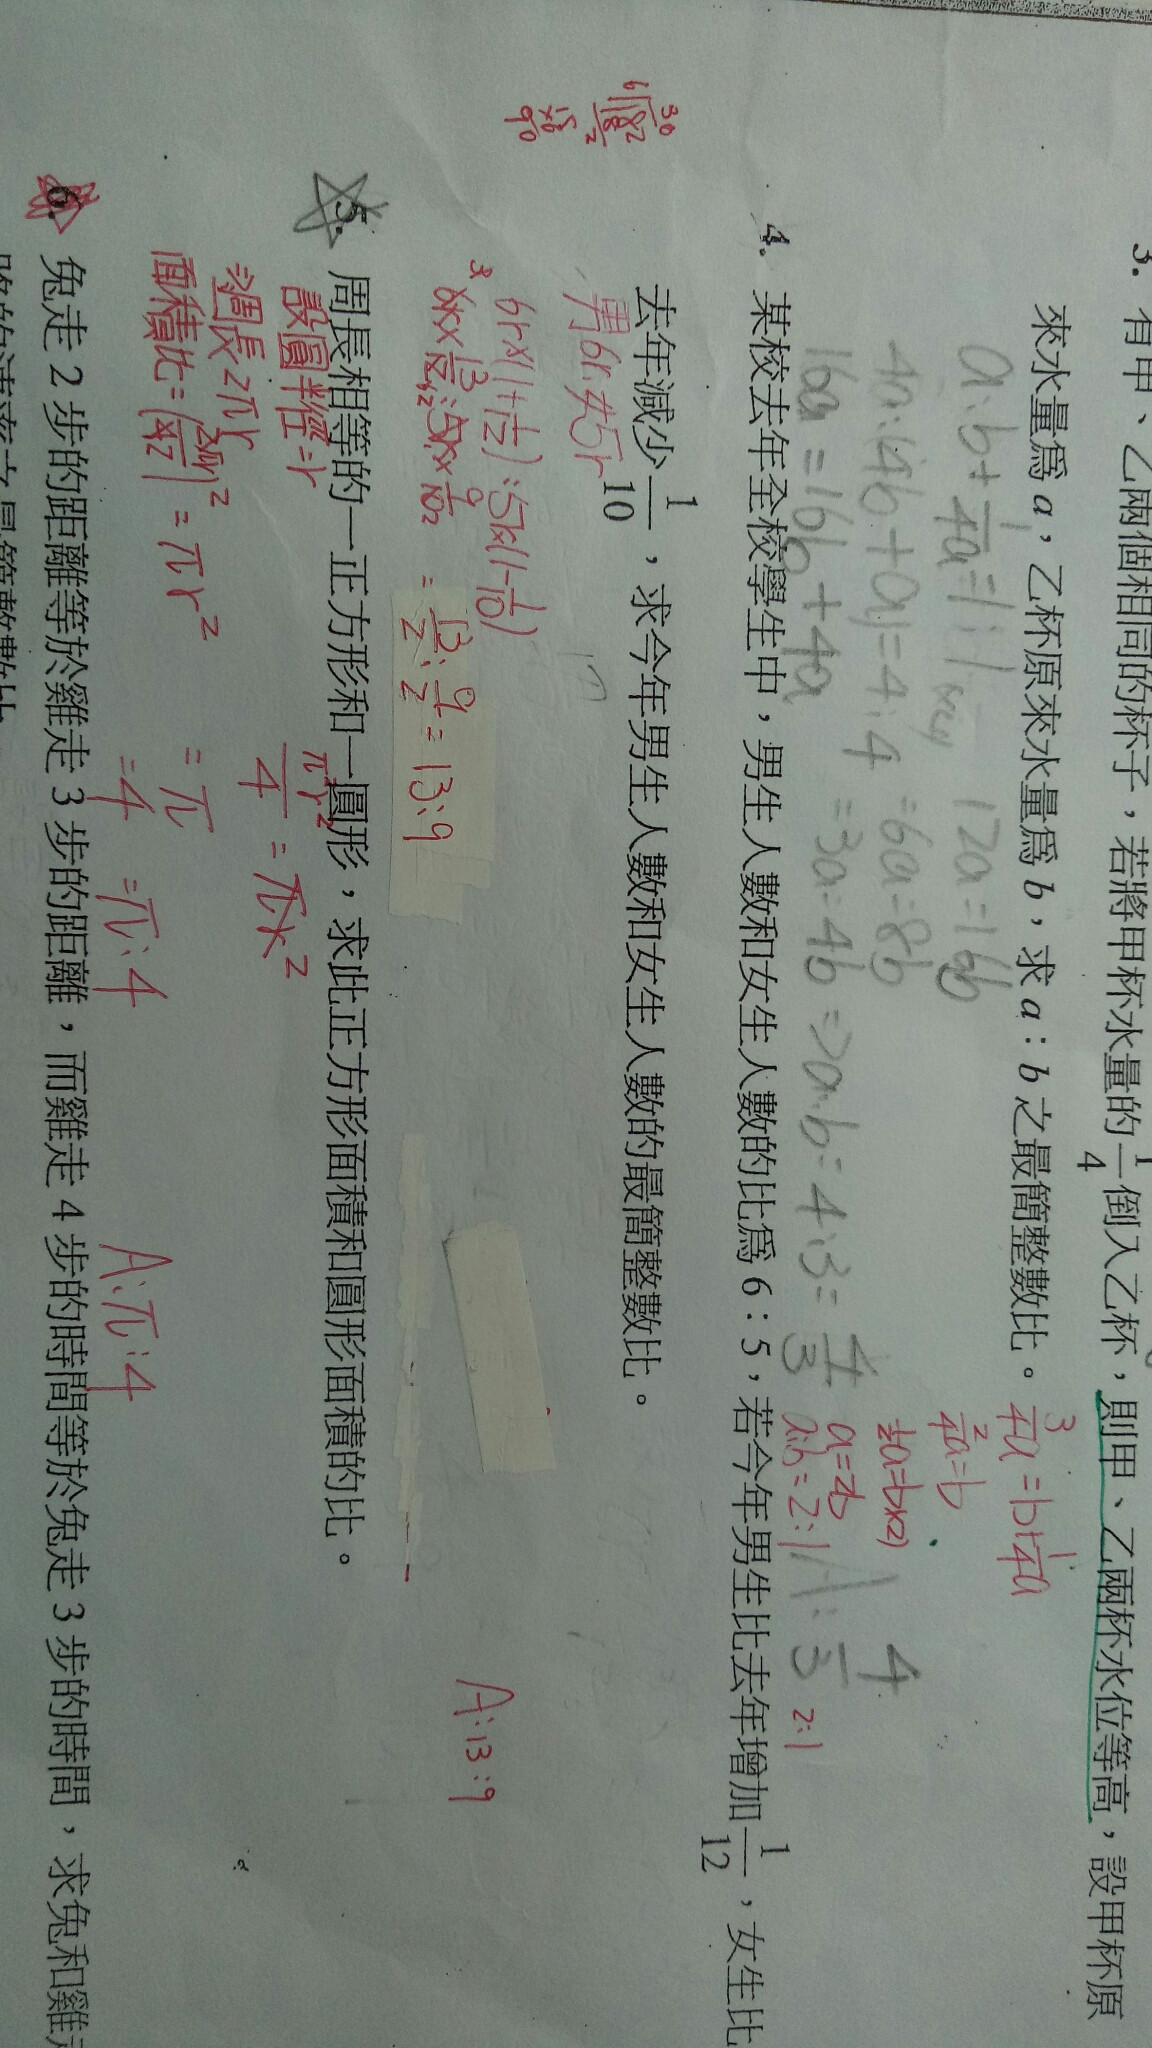 3. 有甲、乙兩個相同的杯子，若將甲杯水量的 1/4 倒入乙杯，則甲、乙兩杯水位等高，設甲杯原
來水量為 a，乙杯原來水量為 b，求 a：b 之最簡整數比。
3/4a = b+1/4a
2/4a=b
1/2a=b(×2)
a=2b
a:b=2:1
a:b+1/4a=1:1
4a:(4b+a)=4:4
16a=16b+4a
12a=16b
=6a=8b
=3a=4b => a:b=4:3=4/3
A: 4/3
2:1
4. 某校去年全校學生中，男生人數和女生人數的比為 6：5，若今年男生比去年增加 1/12，女生比
去年減少 1/10，求今年男生人數和女生人數的最簡整數比。
男6r 女5r
6r×(1+1/12):5r×(1-1/10)
6r×13/12:5r×9/10 = 13/2:9/2=13:9
A:13:9
5. 周長相等的一正方形和一圓形，求此正方形面積和圓形面積的比。
設圓半徑=r
⇒週長2πr
面積比=(2πr/4)² = πr²
π²r²/4 = πr²
=π/4 =π:4
A:π:4
6. 兔走 2 步的距離等於雞走 3 步的距離，而雞走 4 步的時間等於兔走 3 步的時間，求兔和雞